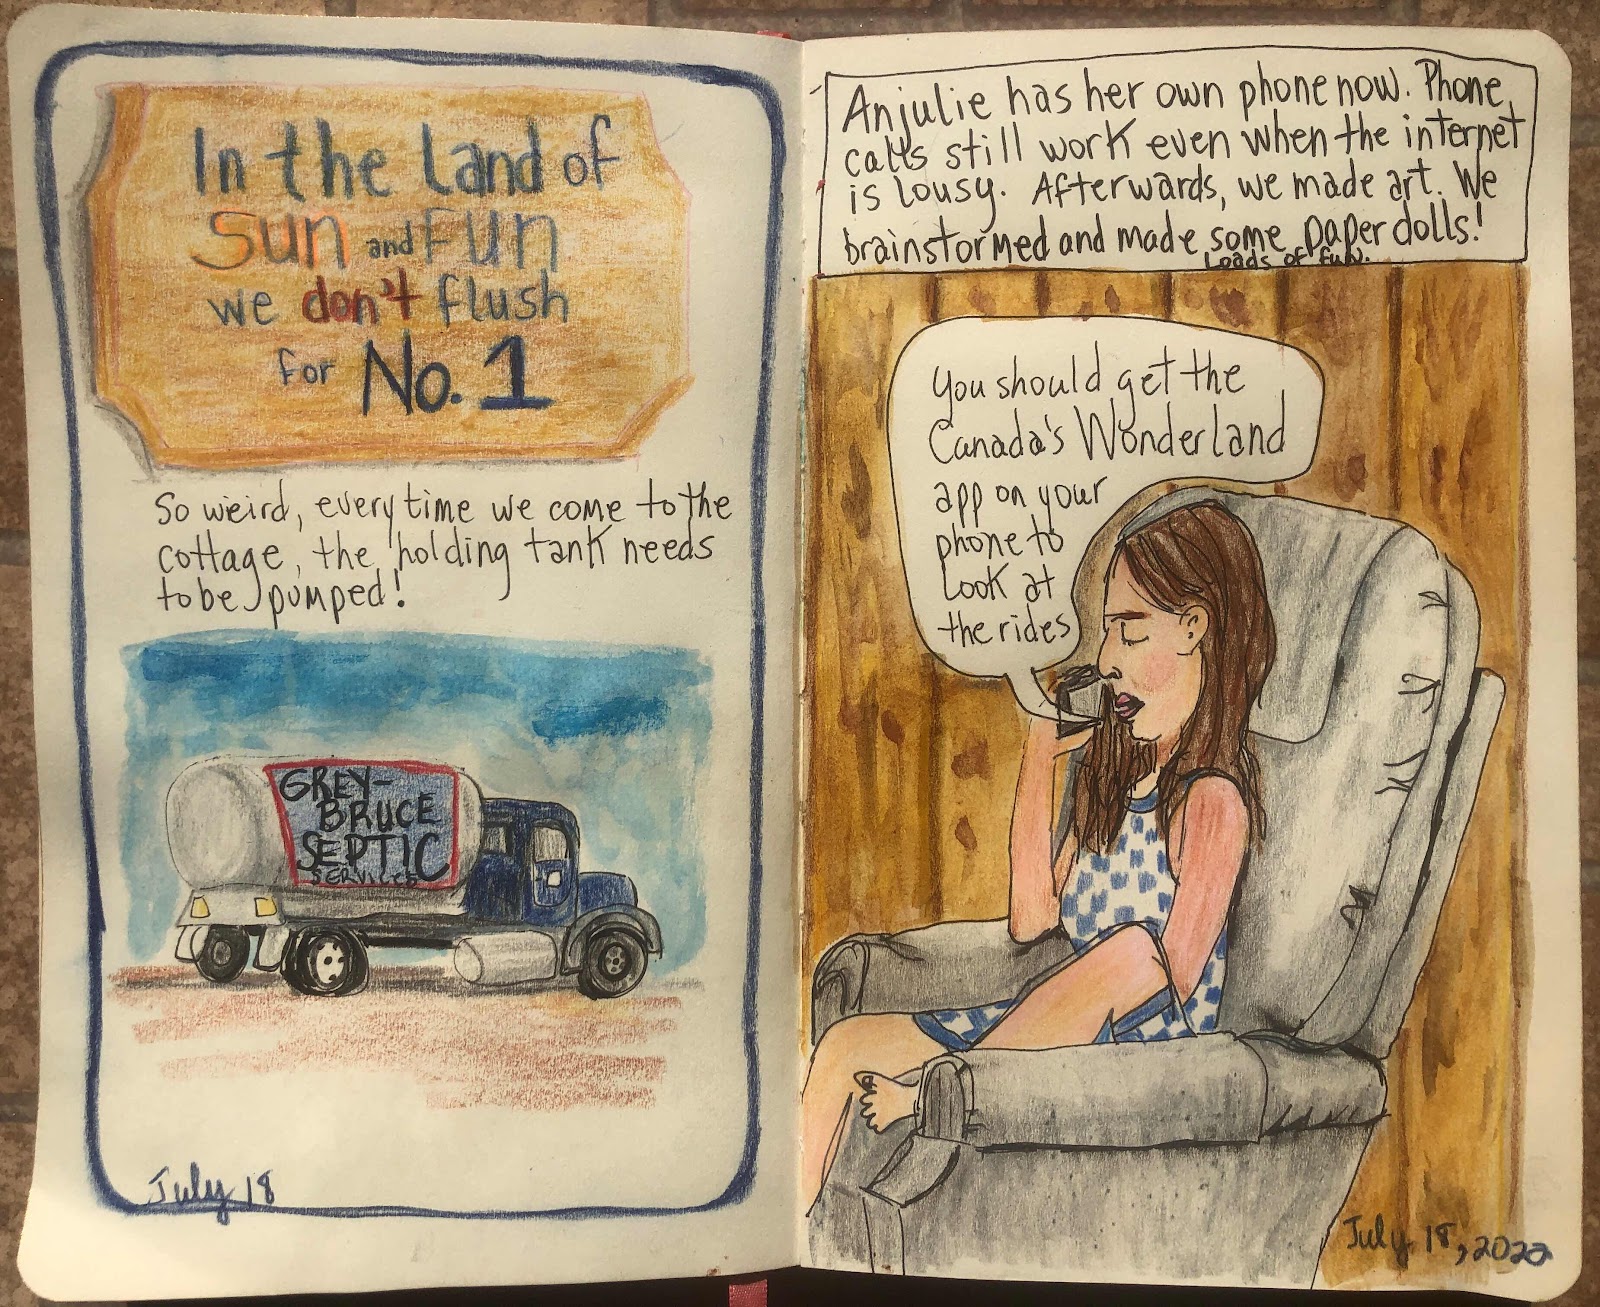 In the Land of
Sun and Fun
we don't flush
for No. 1
So weird, every time we come to the
cottage, the holding tank needs
to be pumped!
GREY-
BRUCE
SEPTIC
SERVICES
July 18
Anjulie has her own phone now. Phone
calls still work even when the internet
is lousy. Afterwards, we made art. We
brainstormed and made some paper dolls!
Loads of fun.
You should get the
Canada's Wonderland
app on your
phone to
look at
the rides
July 18, 2022